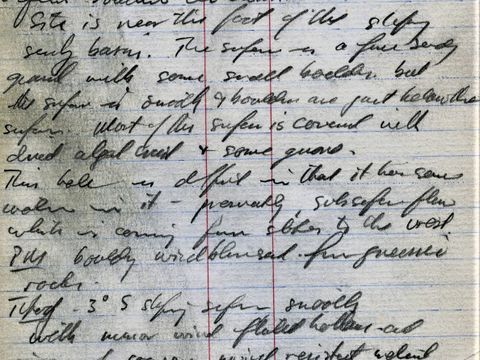 Site is near the foot of the sloping
sandy basin. The surface is a fine sandy
gravel with some small boulders but
the surface is smooth & boulders are just below the
surface. Most of the surface is covered with
dried algal crust & some guano.
This hole is different in that it has some
water in it - presumably subsurface flow
which is coming from to the west.
Pits bouldery windblown sand from
rocks.
- 3° S sloping surface smooth
with minor wind fluted hollows and
resistant